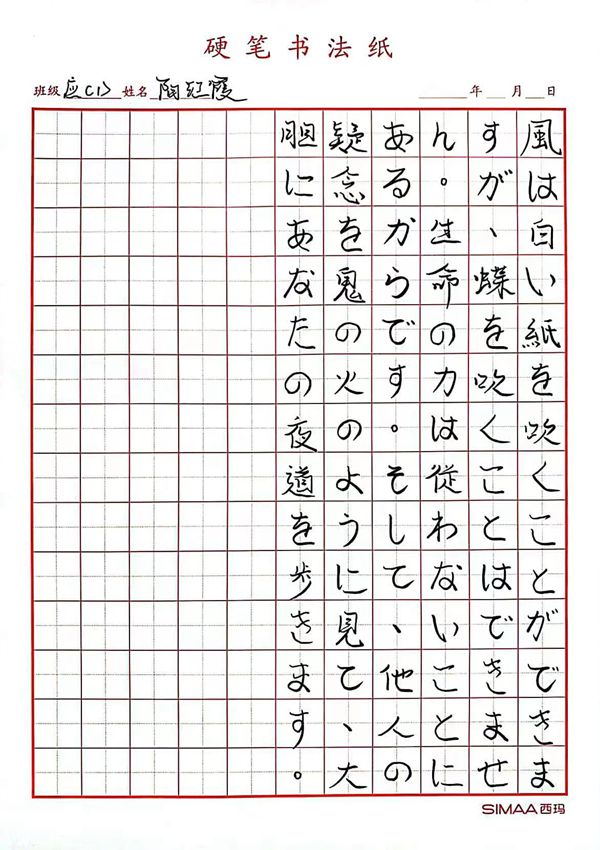 硬笔书法纸
班级 应(1) 姓名 陶红霞 年 月 日
風は白い紙を吹くことができま
すが、蝶を吹くことはできませ
ん。生命の力は従わないことに
あるからです。そして、他人の
疑念を鬼の火のように見て、大
胆にあなたの夜道を歩きます。
SIMAA西玛